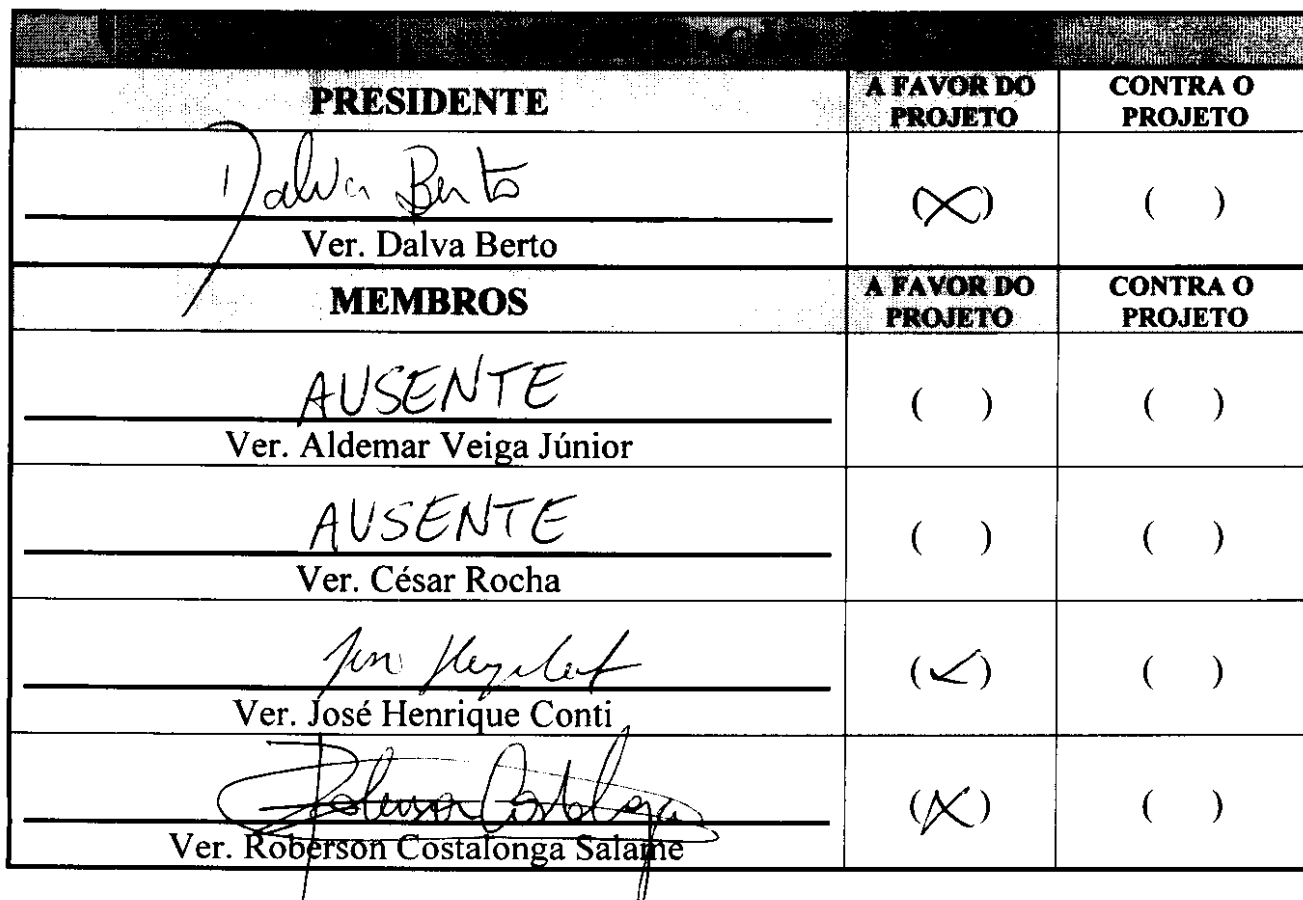 PRESIDENTE
A FAVOR DO PROJETO
CONTRA O PROJETO
Dalva Berto
(X)
( )
Ver. Dalva Berto
MEMBROS
A FAVOR DO PROJETO
CONTRA O PROJETO
AUSENTE
( )
( )
Ver. Aldemar Veiga Júnior
AUSENTE
( )
( )
Ver. César Rocha
(✓)
( )
Ver. José Henrique Conti
(X)
( )
Ver. Roberson Costalonga Salame